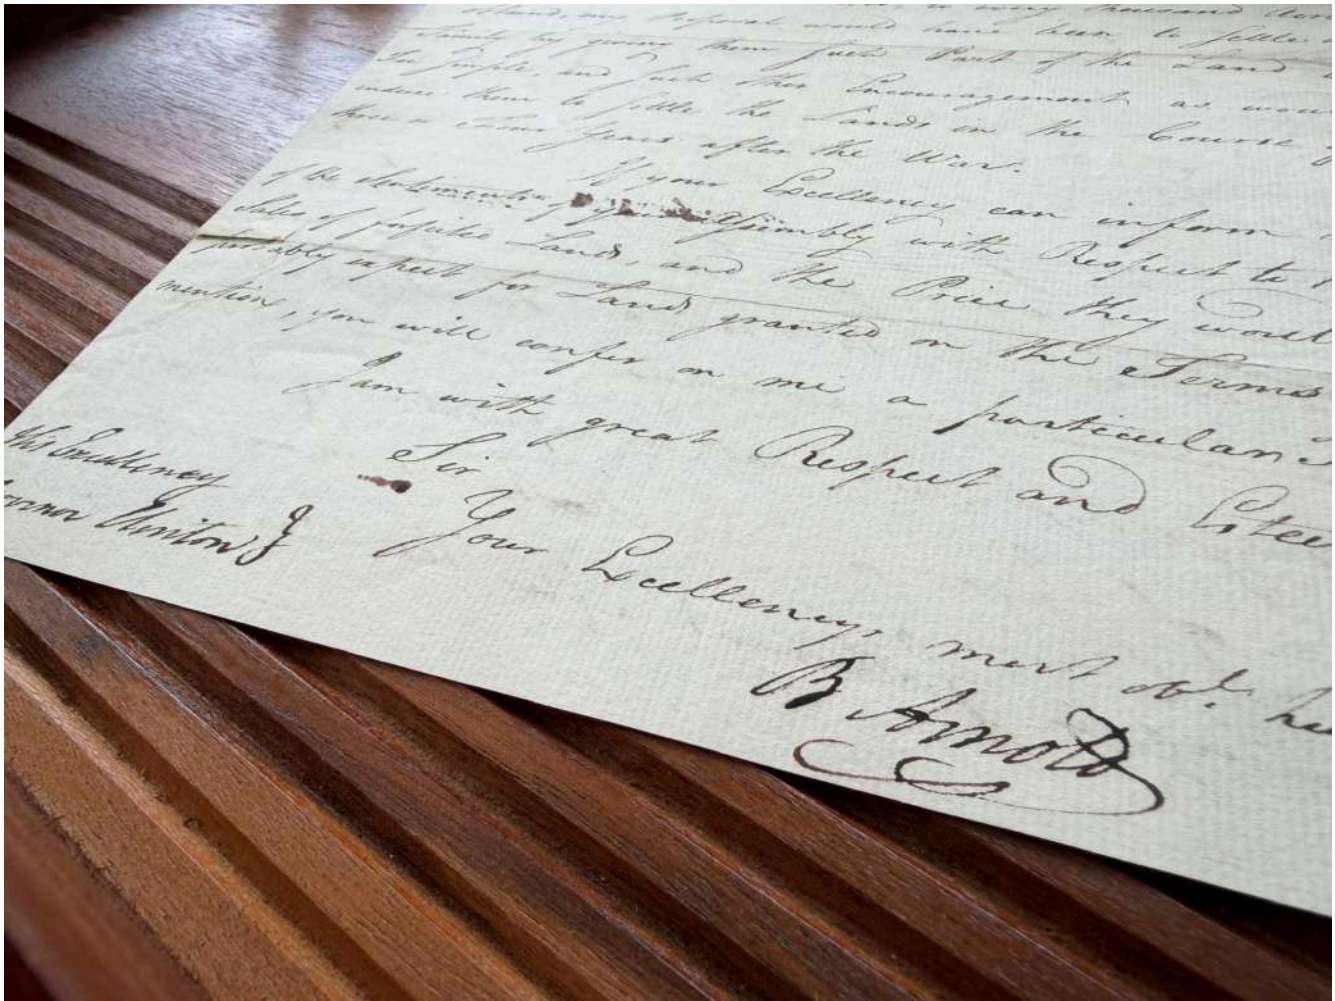 in every thousand
my Proposal would have been to settle
Family by giving them such Part of the Land
Fee Simple, and such other Encouragement as wou
induce them to settle the Lands in the Course
three or Four Years after the War.
If your Excellency can inform
of the Sentiments of your Assembly with Respect to
Sales of forfeited Lands, and the Price they would
probably expect for Lands granted on the Terms
mention, you will confer on me a particular
I am with great Respect and Estee
Sir
Your Excellencys most obt. hu
B Arnold
His Excellency
ernor Clinton